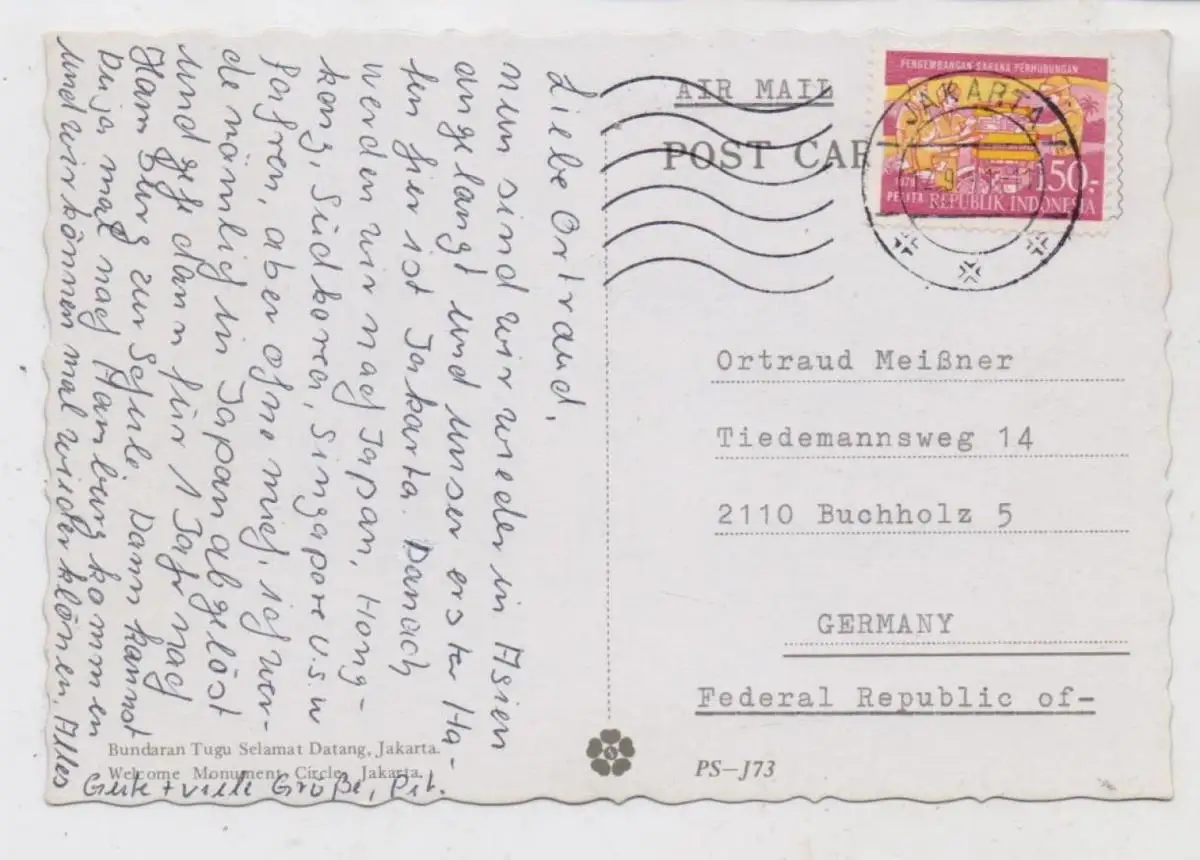 Liebe Ortraud,
nun sind wir wieder in Asien
angelangt und unser erster Ha-
fen hier ist Jakarta. Danach
werden wir nach Japan, Hong-
kong, Südkorea, Singapore usw
fahren, aber ohne mich, ich wer-
de nämlich in Japan abgelöst
und gehe dann für 1 Jahr nach
Hamburg zur Schule. Dann kannst
Du ja mal nach Hamburg kommen
und wir können mal wieder klönen. Alles
Gute + viele Grüße, Pit.
Bundaran Tugu Selamat Datang, Jakarta.
Welcome Monument Circle, Jakarta.
AIR MAIL
POST CAR
PENGEMBANGAN SARANA PERHUBUNGAN
JAKARTA
PELITA
150.-
REPUBLIK INDONESIA
Ortraud Meißner
Tiedemannsweg 14
2110 Buchholz 5
GERMANY
Federal Republic of-
PS-J73